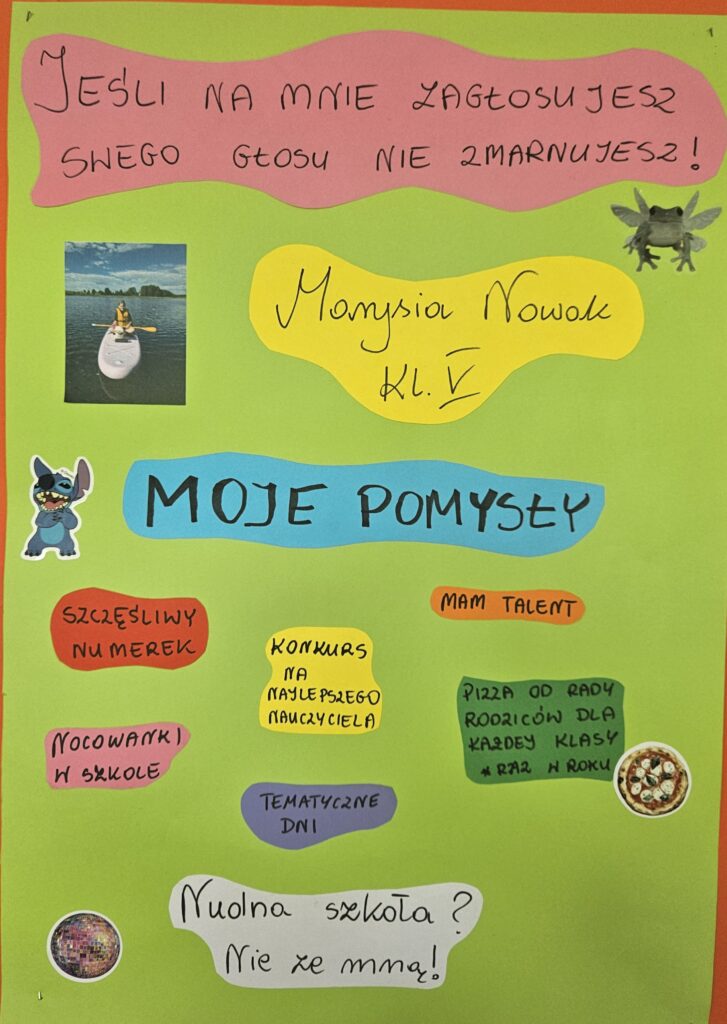 JEŚLI NA MNIE ZAGŁOSUJESZ
SWEGO GŁOSU NIE ZMARNUJESZ!
Marysia Nowak
Kl. V
MOJE POMYSŁY
SZCZĘŚLIWY
NUMEREK
KONKURS
NA
NAJLEPSZEGO
NAUCZYCIELA
MAM TALENT
NOCOWANKI
W SZKOLE
PIZZA OD RADY
RODZICÓW DLA
KAŻDEJ KLASY
* RAZ W ROKU
TEMATYCZNE
DNI
Nudna szkoła?
Nie ze mną!